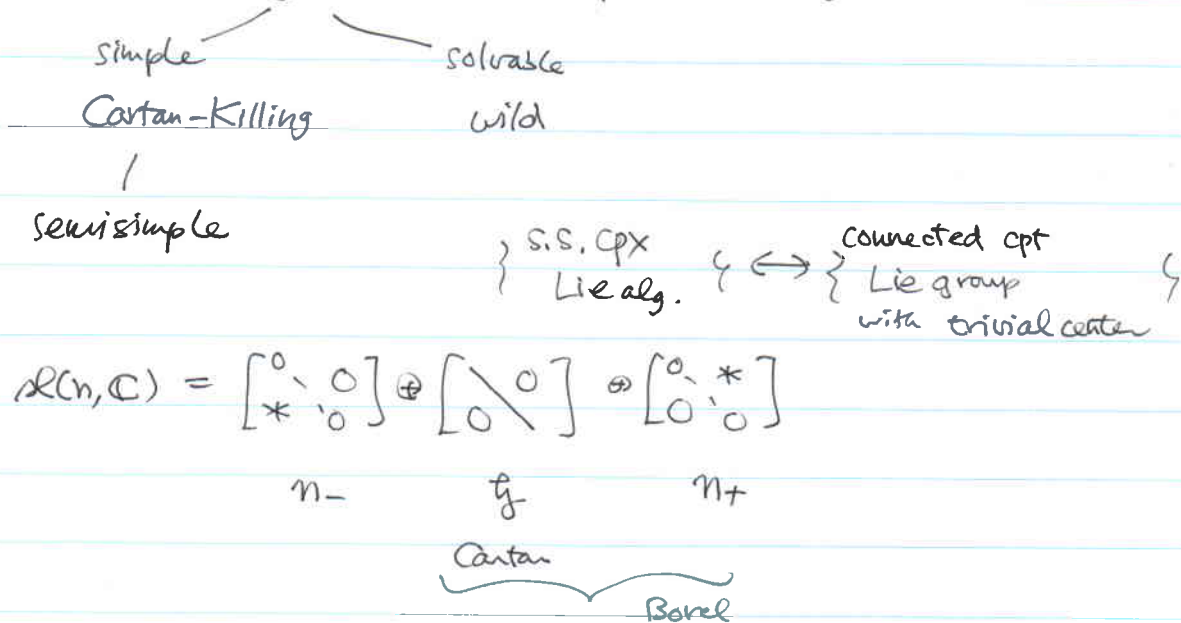 simple solvable
Cartan-Killing wild
semisimple
{ s.s. cpx Lie alg. } ↔ { connected cpt Lie group with trivial center }
sl(n, ℂ) = [0 0 * 0] ⊕ [0 0] ⊕ [0 * 0 0]
n- h n+
Cartan
Borel